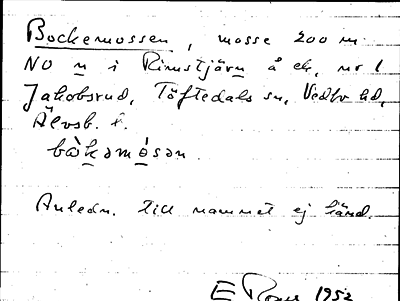 Bockemossen, mosse 200 m
NO n i Rinnstjärn å ek. nr 1
Jakobsrud, Töftedals sn, Vedbo hd,
Älvsb. l.
bòkəmósən
Anledn. till namnet ej känd.
E 1952